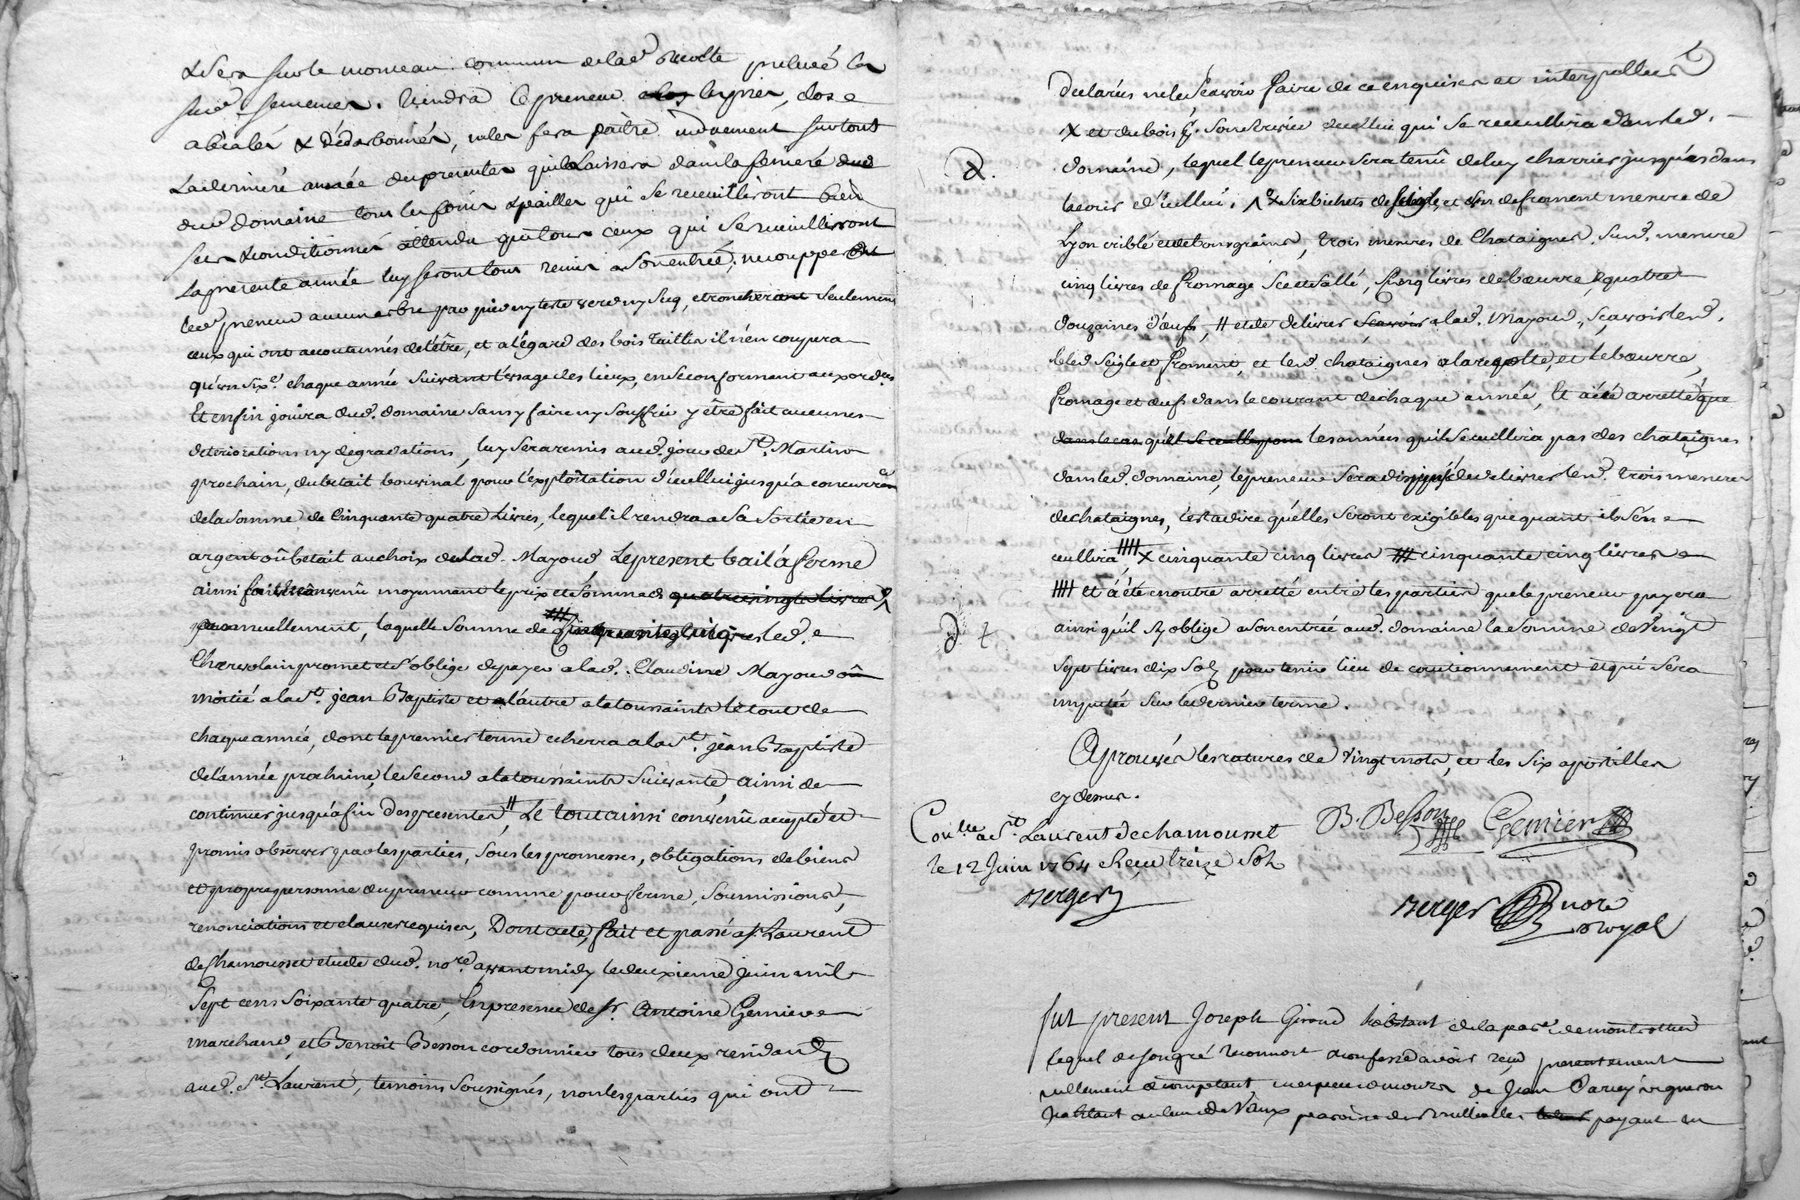 & sera sur le monceau commun de lad. recolte prelevé les
sud. semences. tiendra le preneur les prés, clos
la derniere année des presentes qu'il laissera dans la fenieré
dud. domaine tous les foins & pailles qui se recueilliront bien
secs & conditionnés attendu que tous ceux qui se recueilliront
la presente année luy seront tous remis a son entrée; ne couppera
led. preneur aucun arbre par pied ny teste verd ny sec, et ronchera seulement
ceux qui ont accoutumés de l'être, et a légard des bois taillis il n'en coupera
qu'un six.e chaque année suivant l'usage des lieux, en se conformant aux ord.ces
Et enfin jouira dud. domaine sans y faire ny souffrir y être fait aucunes
deteriorations ny degradations, luy sera remis aud. jour de St. Martin
prochain, du betail bouvinal pour l'exploitation d'icellui jusqu'a concurrence
de la somme de Cinquante quatre Livres, lequel il rendra a sa sortie en
argent où betail au choix de lad. Mayoud, Le present bail à ferme
ainsi fait & convenû moyennant le prix et somme de quatre vingt livres
annuellement, laquelle somme de cinquante cinq livres led.
promet et s'oblige de payer a lad. Claudine Mayoud où
moitié a la St. jean Baptiste et l'autre a la toussaints le tout de
chaque année, dont le premier terme echerra a la St. jean Baptiste
de l'année prochaine, le second a la toussaints suivante, ainsi de
continuer jusqu'a fin des presentes, Le tout ainsi convenû accepté et
promis observer par les parties, sous les promesses, obligations de biens
et propre personne du preneur comme pour ferme, soumissions,
renonciations et clauses requises, Dont acte, fait et passé a St. Laurent
de Chamousset etude dud. no.re avant midy le deuxieme juin mil
sept cens soixante quatre, En presence de Sr. Antoine Genieve
marchand, et Benoit Besson cordonnier tous deux residants
aud. St. Laurent, temoins soussignés, non les parties qui ont
declarés ne le sçavoir faire de ce enquises et interpellées
X et du bois son traisée de celui qui se recueillira dans led.
domaine, lequel le preneur sera tenû de luy charrier jusques dans
la cour d'icellui. & six bichets de seigle, et un de froment mesure de
Lyon criblé et de bons grains, trois mesures de Chataignes sud. mesure
cinq livres de fromage sec et sallé, cinq livres de bœurre, & quatre
douzaines d'œufs, # et de delivrer sçavoir a lad. Mayoud, sçavoir led.
bled seigle et froment, et led. chataignes a la recolte, et le bœurre,
fromage et œufs dans le courant de chaque année, Et a été arretté que
dans le cas qu'il les années qu'il se ceuillira pas des chataignes
dans led. domaine, le preneur sera dispensé de delivrer led. trois mesures
de chataignes, c'est a dire qu'elles seront exigibles que quant il s'en
ceuillira, X cinquante cinq livres cinquante cinq livres
et a été en outre arretté entre les parties que le preneur payera
ainsi qu'il s'y oblige a son entrée aud. domaine la somme de vingt
sept livres dix sols pour tenir lieu de cautionnement et qui sera
imputée sur le dernier terme.
Aprouvés les ratures de vingt mots, et les six apostilles
cy dessus.
Con.lle a St. Laurent de chamousset
le 12 Juin 1764 Reçu treize sols
Berger
B. Besson Genieve
Berger no.re royal
fut present Joseph Giroud habitant de la par.e de montrottier
lequel de son gré reconnoit a confessé avoir reçu presentement
reellement & comptant de Jean vigneron
habitant au lieu de Vaux paroisse de payant en